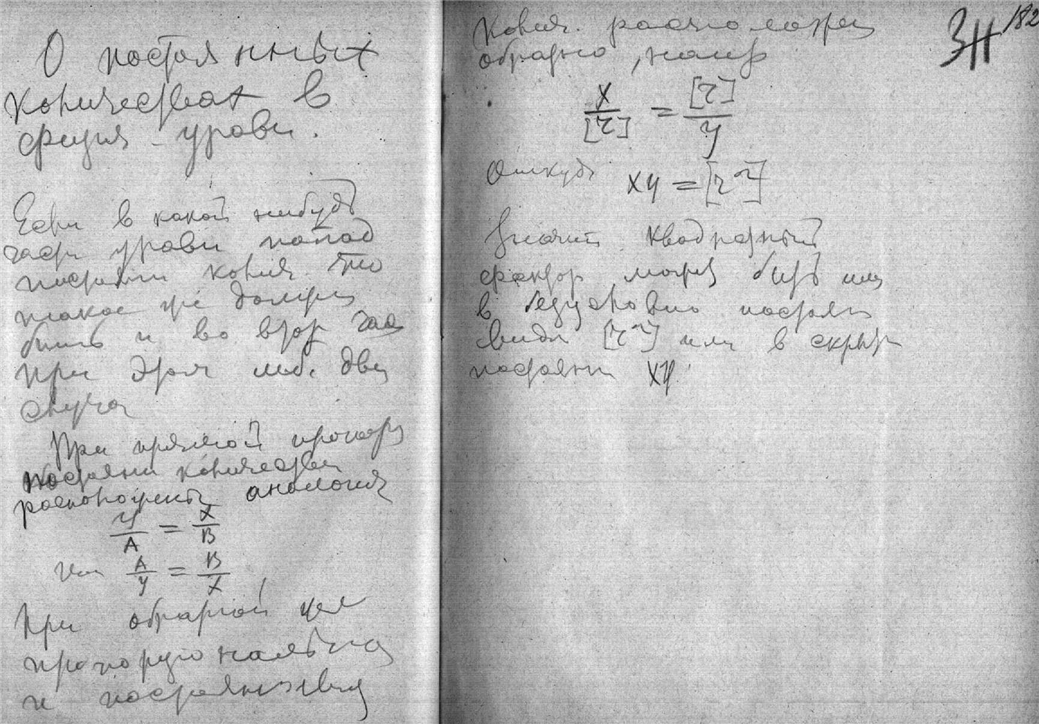 О постоянных
количествах в
функц. уравн.
Если в какой нибудь
части уравн. попад
постоянн колич. то
такое же должн
быть и во втор час
При этом две
случа
При прямой пропорц
постоянн количества
расположены аналогич
y/A = x/B
или A/y = B/x
При обратной
пропорциональн
и постоянн
Колич. расположен
обратно, напр
x/[r] = [r]/y
Откуда xy = [r²]
Значит квадратный
фактор может быть или
в безусловно постоян
виде [r²] или в скрыт
постоянн xy.
ЗН 182